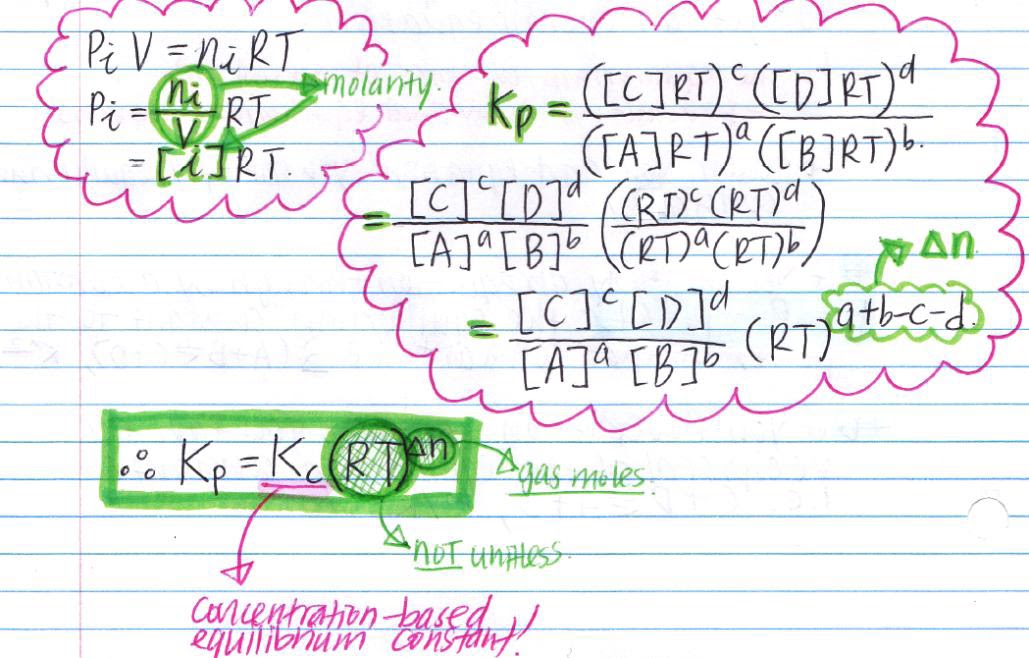 PiV = niRT
Pi = ni/V RT
= [i]RT.
molarity.
Kp = ([C]RT)^c ([D]RT)^d / ([A]RT)^a ([B]RT)^b.
= [C]^c [D]^d / [A]^a [B]^b ((RT)^c (RT)^d / (RT)^a (RT)^b)
= [C]^c [D]^d / [A]^a [B]^b (RT)^a+b-c-d.
Δn
∴ Kp = Kc (RT)^Δn
gas moles.
NOT unitless.
concentration-based
equilibrium constant!